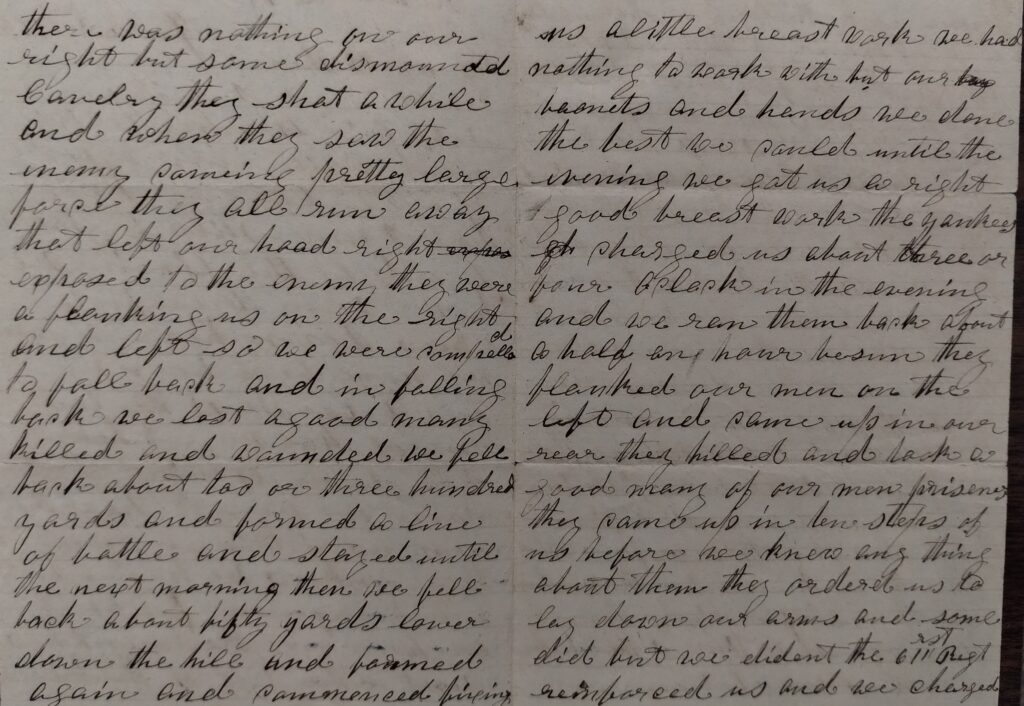 there was nothing on our
right but some dismounted
Cavelry they shot a while
and when they saw the
enemy comeing pretty large
force they all run away
that left our hoad right expos
exposed to the enemy they were
a flanking us on the right
and left so we were compelled
to fall back and in falling
back we lost a good many
killed and wounded we fell
back about too or three hundred
yards and formed a line
of battle and stayed until
the next morning then we fell
back about fifty yards lower
down the hill and formed
again and commenced fixing
us alittle breast work we had
nothing to work with but our bay
baonets and hands we done
the best we could until the
evening we got us a right
good breast work the yankees
charged us about three or
four Oclock in the evening
and we ran them back about
a half an hour besun they
flanked our men on the
left and came up in our
rear they killed and took a
good many of our men prisener
they came up in ten steps of
us before we knew any thing
about them they ordered us to
lay down our arms and some
did but we dident the 61rst Regt
reinforced us and we charged